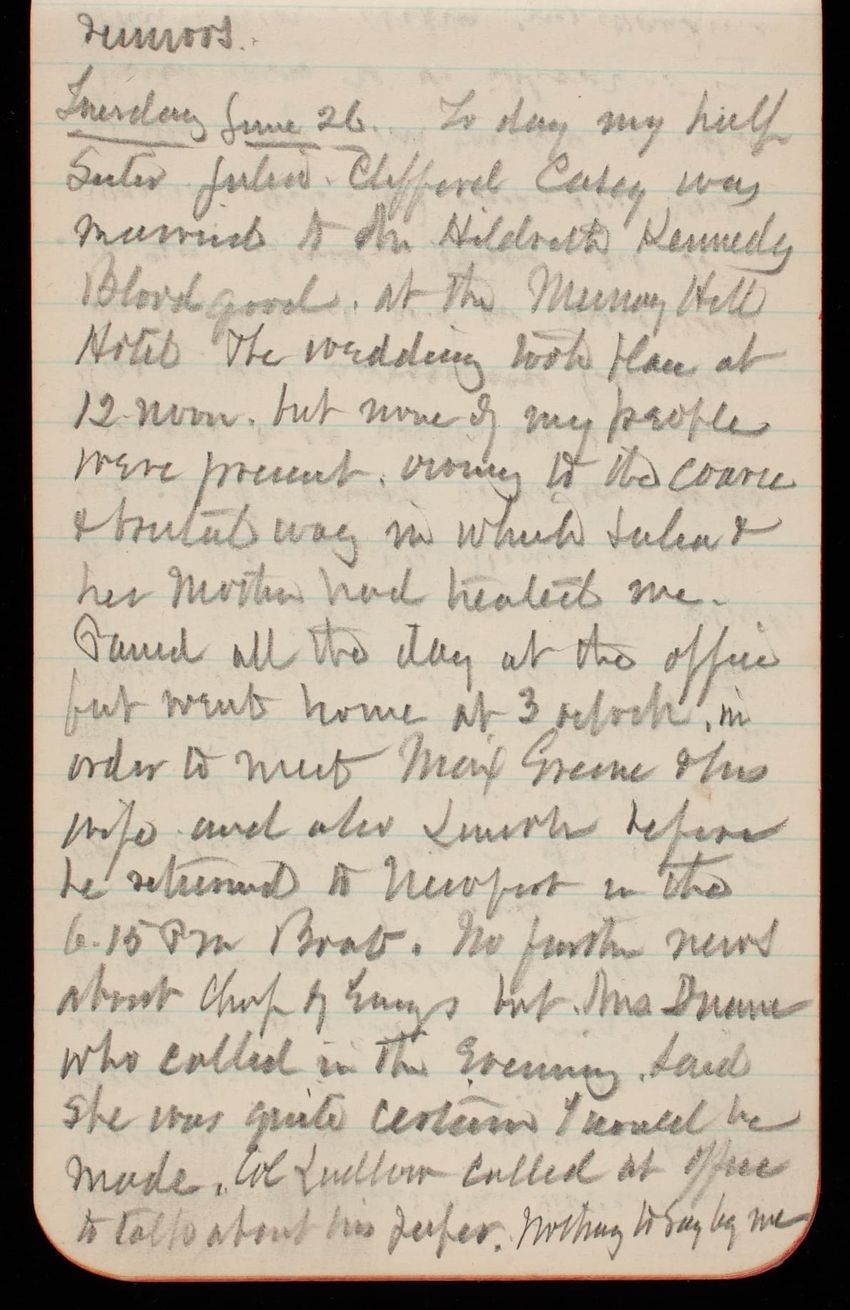 rumors.
Tuesday June 26. To day my half
Sister Julia Clifford Casey was
married to Mr Hildreth Kennedy
Bloodgood. at the Murray Hill
Hotel The wedding took place at
12 noon. but none of my people
were present. owing to the coarse
& brutal way in which Julia &
her Mother had treated me.
Passed all the day at the office
but went home at 3 oclock, in
order to meet Maj Greene & his
wife and also Lincoln before
he returned to Newport in the
6.15 Pm Boat. No further news
about Chf of Engs but Mrs Duane
who called in the Evening. Said
She was quite certain I would be
made. Col Ludlow called at office
to talk about his Nothing to say by me